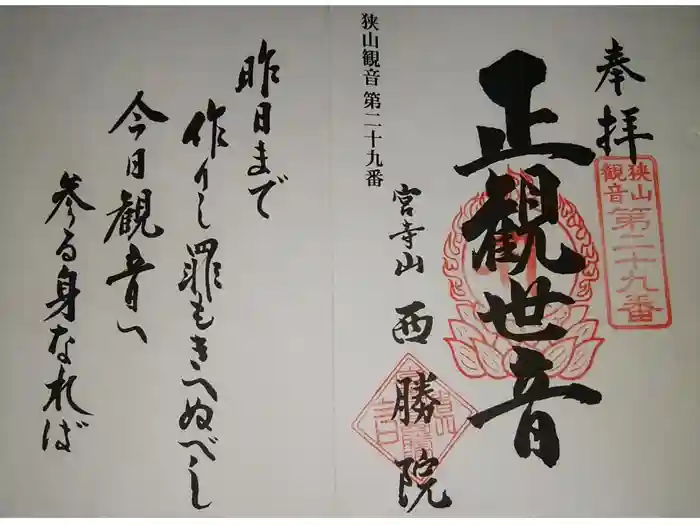 奉拝
狭山
観音
第二十九番
正観世音
宮寺山 西勝院
狭山観音 第二十九番
昨日まで
作りし罪もきへぬべし
今日観音へ
参る身なれば